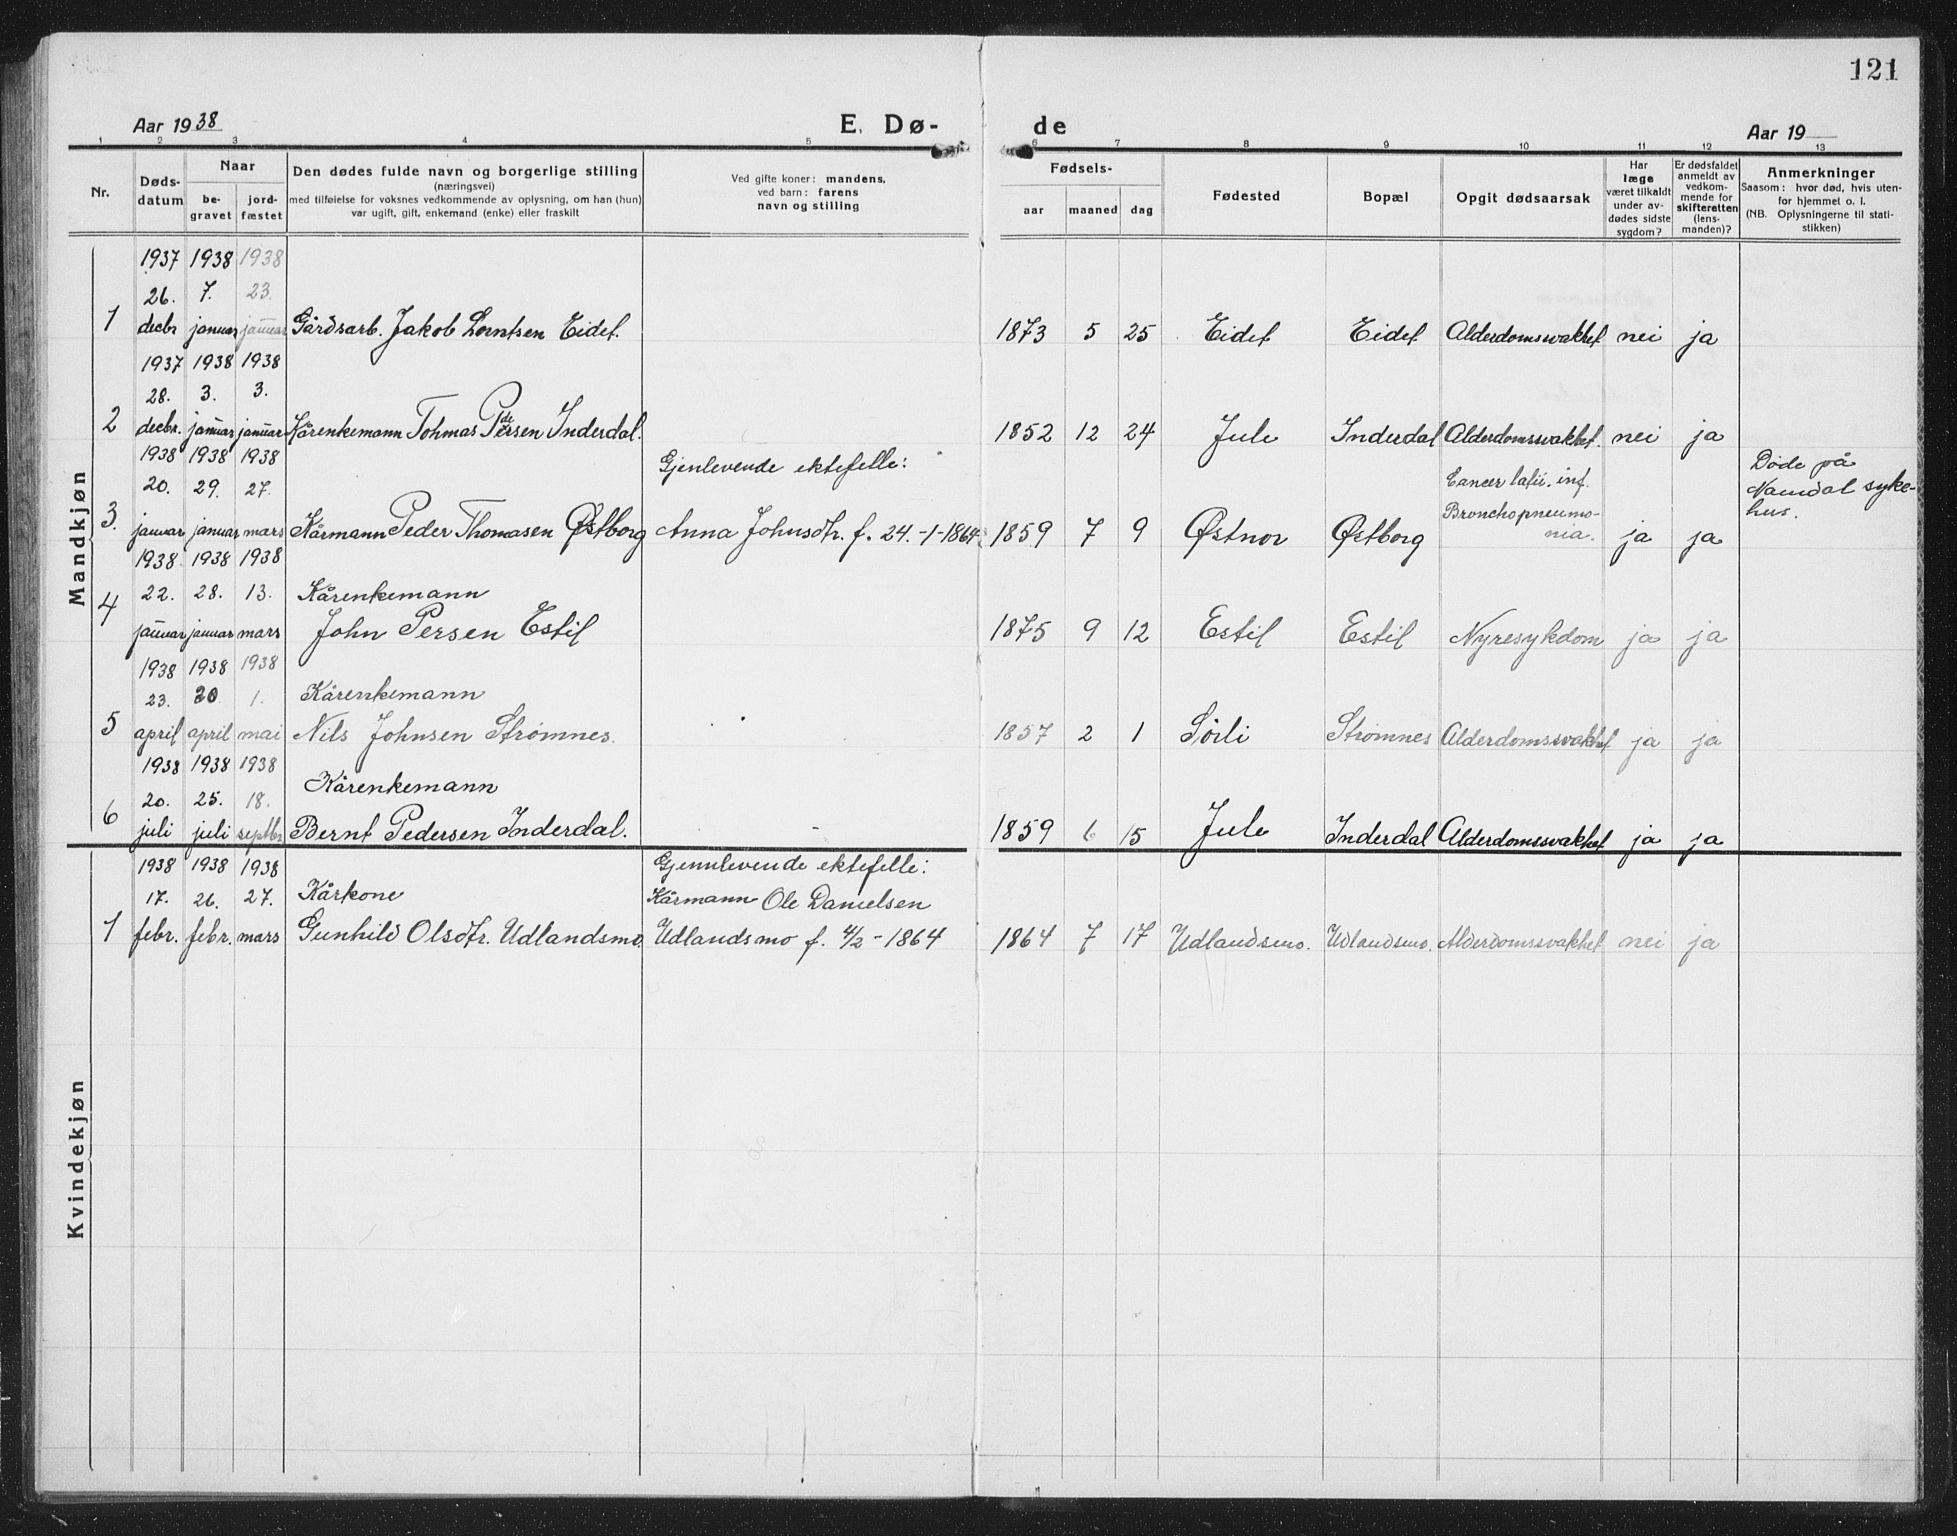 121
Aar 1938
E. Dø-
de
Aar 19
1 2 3 4 5 6 7 8 9 10 11 12 13
Nr.
Døds-
datum
Naar
be-
gravet
jord-
fæstet
Den dødes fulde navn og borgerlige stilling
(næringsvei)
med tilføielse for voksnes vedkommende av oplysning, om han (hun)
var ugift, gift, enkemand (enke) eller fraskilt
Ved gifte koner: mandens,
ved barn: farens
navn og stilling
Fødsels-
aar
maaned
dag
Fødested
Bopæl
Opgit dødsaarsak
Har
læge
været tilkaldt
under av-
dødes sidste
sygdom?
Er dødsfaldet
anmeldt av
vedkom-
mende for
skifteretten
(lens-
manden)?
Anmerkninger
Saasom: hvor død, hvis uten-
for hjemmet o. l.
(NB. Oplysningerne til stati-
stikken)
Mandkjøn
1937 1938 1938
26. 7. 23.
1 decbr januar januar Gårdsarb. Jakob Lorntsen Eidet. 1873 5 25 Eidet Eidet Alderdomsvakhet nei ja
1937 1938 1938
28. 3. 3.
de
2 decbr. januar januar Kårenkemann Tohmas Persen Inderdal. 1852 12 24 Jule Inderdal Alderdomssvakhet. nei ja
1938 1938 1938 Gjenlevende ektefelle: Døde på
20. 29. 27. Cancer inf. Namdal syke-
Bronchopneumo- hus.
3. januar januar mars Kårmann Peder Thomasen Østborg Anna Johnsdtr. f. 24.-1-1864 1859 7 9 Østnor Østborg nia. ja ja
1938. 1938 1938
22. 28. 13. Kårenkemann
4 januar januar mars John Persen Estil 1875 9 12 Estil Estil Nyresykdom ja ja
1938 1938 1938
23. 30 1. Kårenkemann
5 april april mai Nils Johnsen Strømnes. 1857 2 1 Sörli Strømnes Alderdomssvakhet ja ja
1938 1938 1938
20. 25. 18. Kårenkemann
6 juli juli septbr Bernt Pedersen Inderdal. 1859 6 15 Jule Inderdal Alderdomssvakhet ja ja
Kvindekjøn
1938 1938 1938 Gjennlevende ektefelle:
17. 26. 27. Kårkone Kårmann Ole Danielsen
1 febr. febr. mars Gunhild Olsdtr. Udlandsmo. Udlandsmo f. 4/2-1864 1864 7 17 Udlandsmo. Udlandsmo. Alderdomssvakhet nei ja